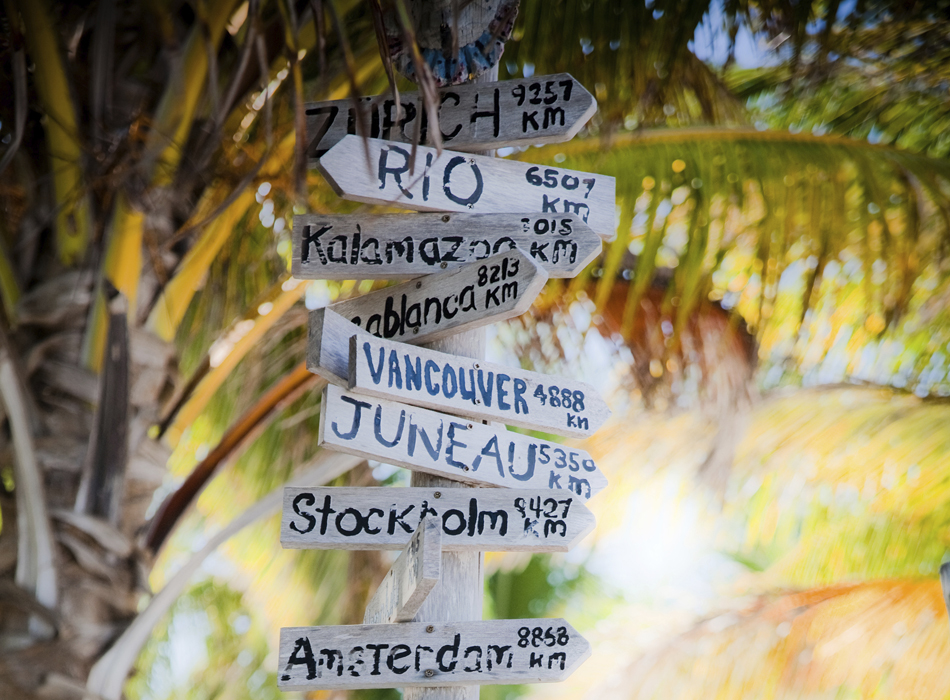 ZURICH 9257
KM
RIO 6507
KM
Kalamazoo
KM
ablanca 8213
KM
VANCOUVER 4888
km
JUNEAU 5350
km
Stockholm
KM
Amsterdam 8858
KM